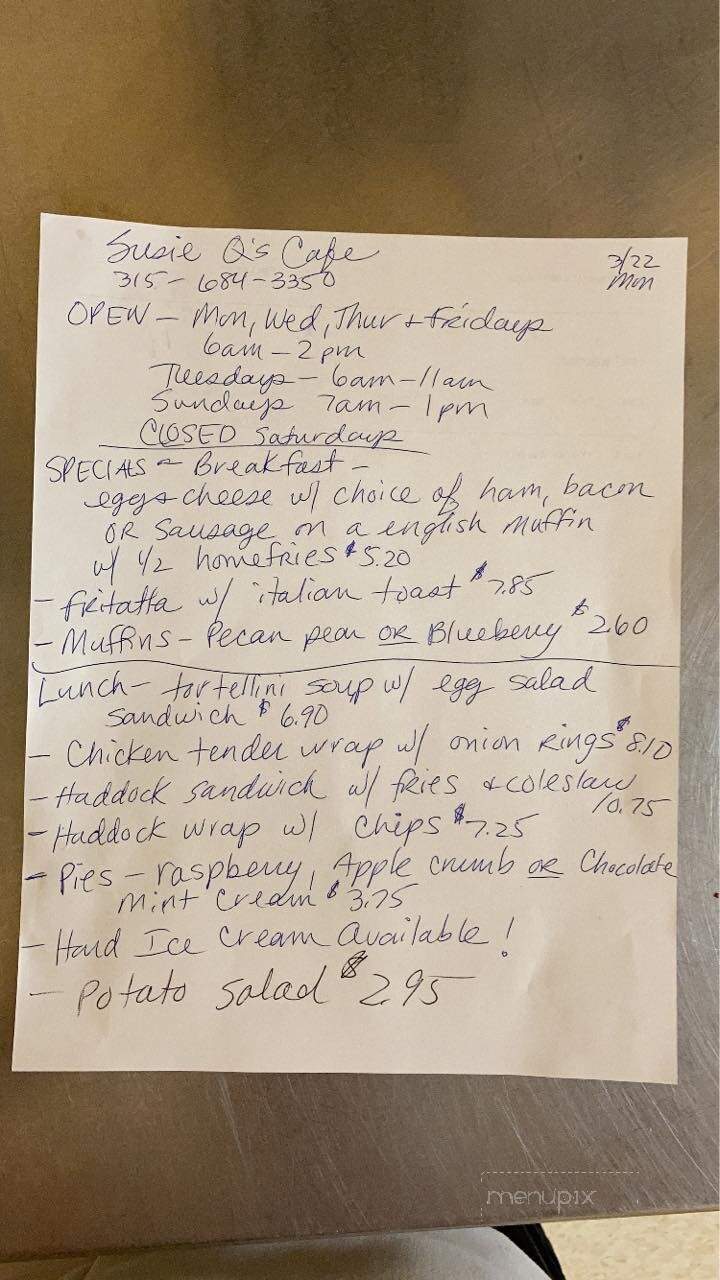 Susie Q's Cafe
3/22
Mon
315-684-3350
OPEN - Mon, Wed, Thur + fridays
6am - 2pm
Tuesdays - 6am - 11am
Sundays 7am - 1pm
CLOSED Saturdays
SPECIALS - Breakfast -
egg + cheese w/ choice of ham, bacon
OR Sausage on a english muffin
w/ 1/2 homefries $5.20
- fritatta w/ italian toast $7.85
- Muffins - Pecan pear OR Blueberry $2.60
Lunch - tortellini soup w/ egg salad
sandwich $6.90
- Chicken tender wrap w/ onion Rings $8.10
- Haddock sandwich w/ fries + coleslaw
10.75
- Haddock wrap w/ chips $7.25
- Pies - raspberry, Apple crumb OR Chocolate
mint cream $3.75
- Hard Ice Cream Available!
- Potato Salad $2.95
menupix